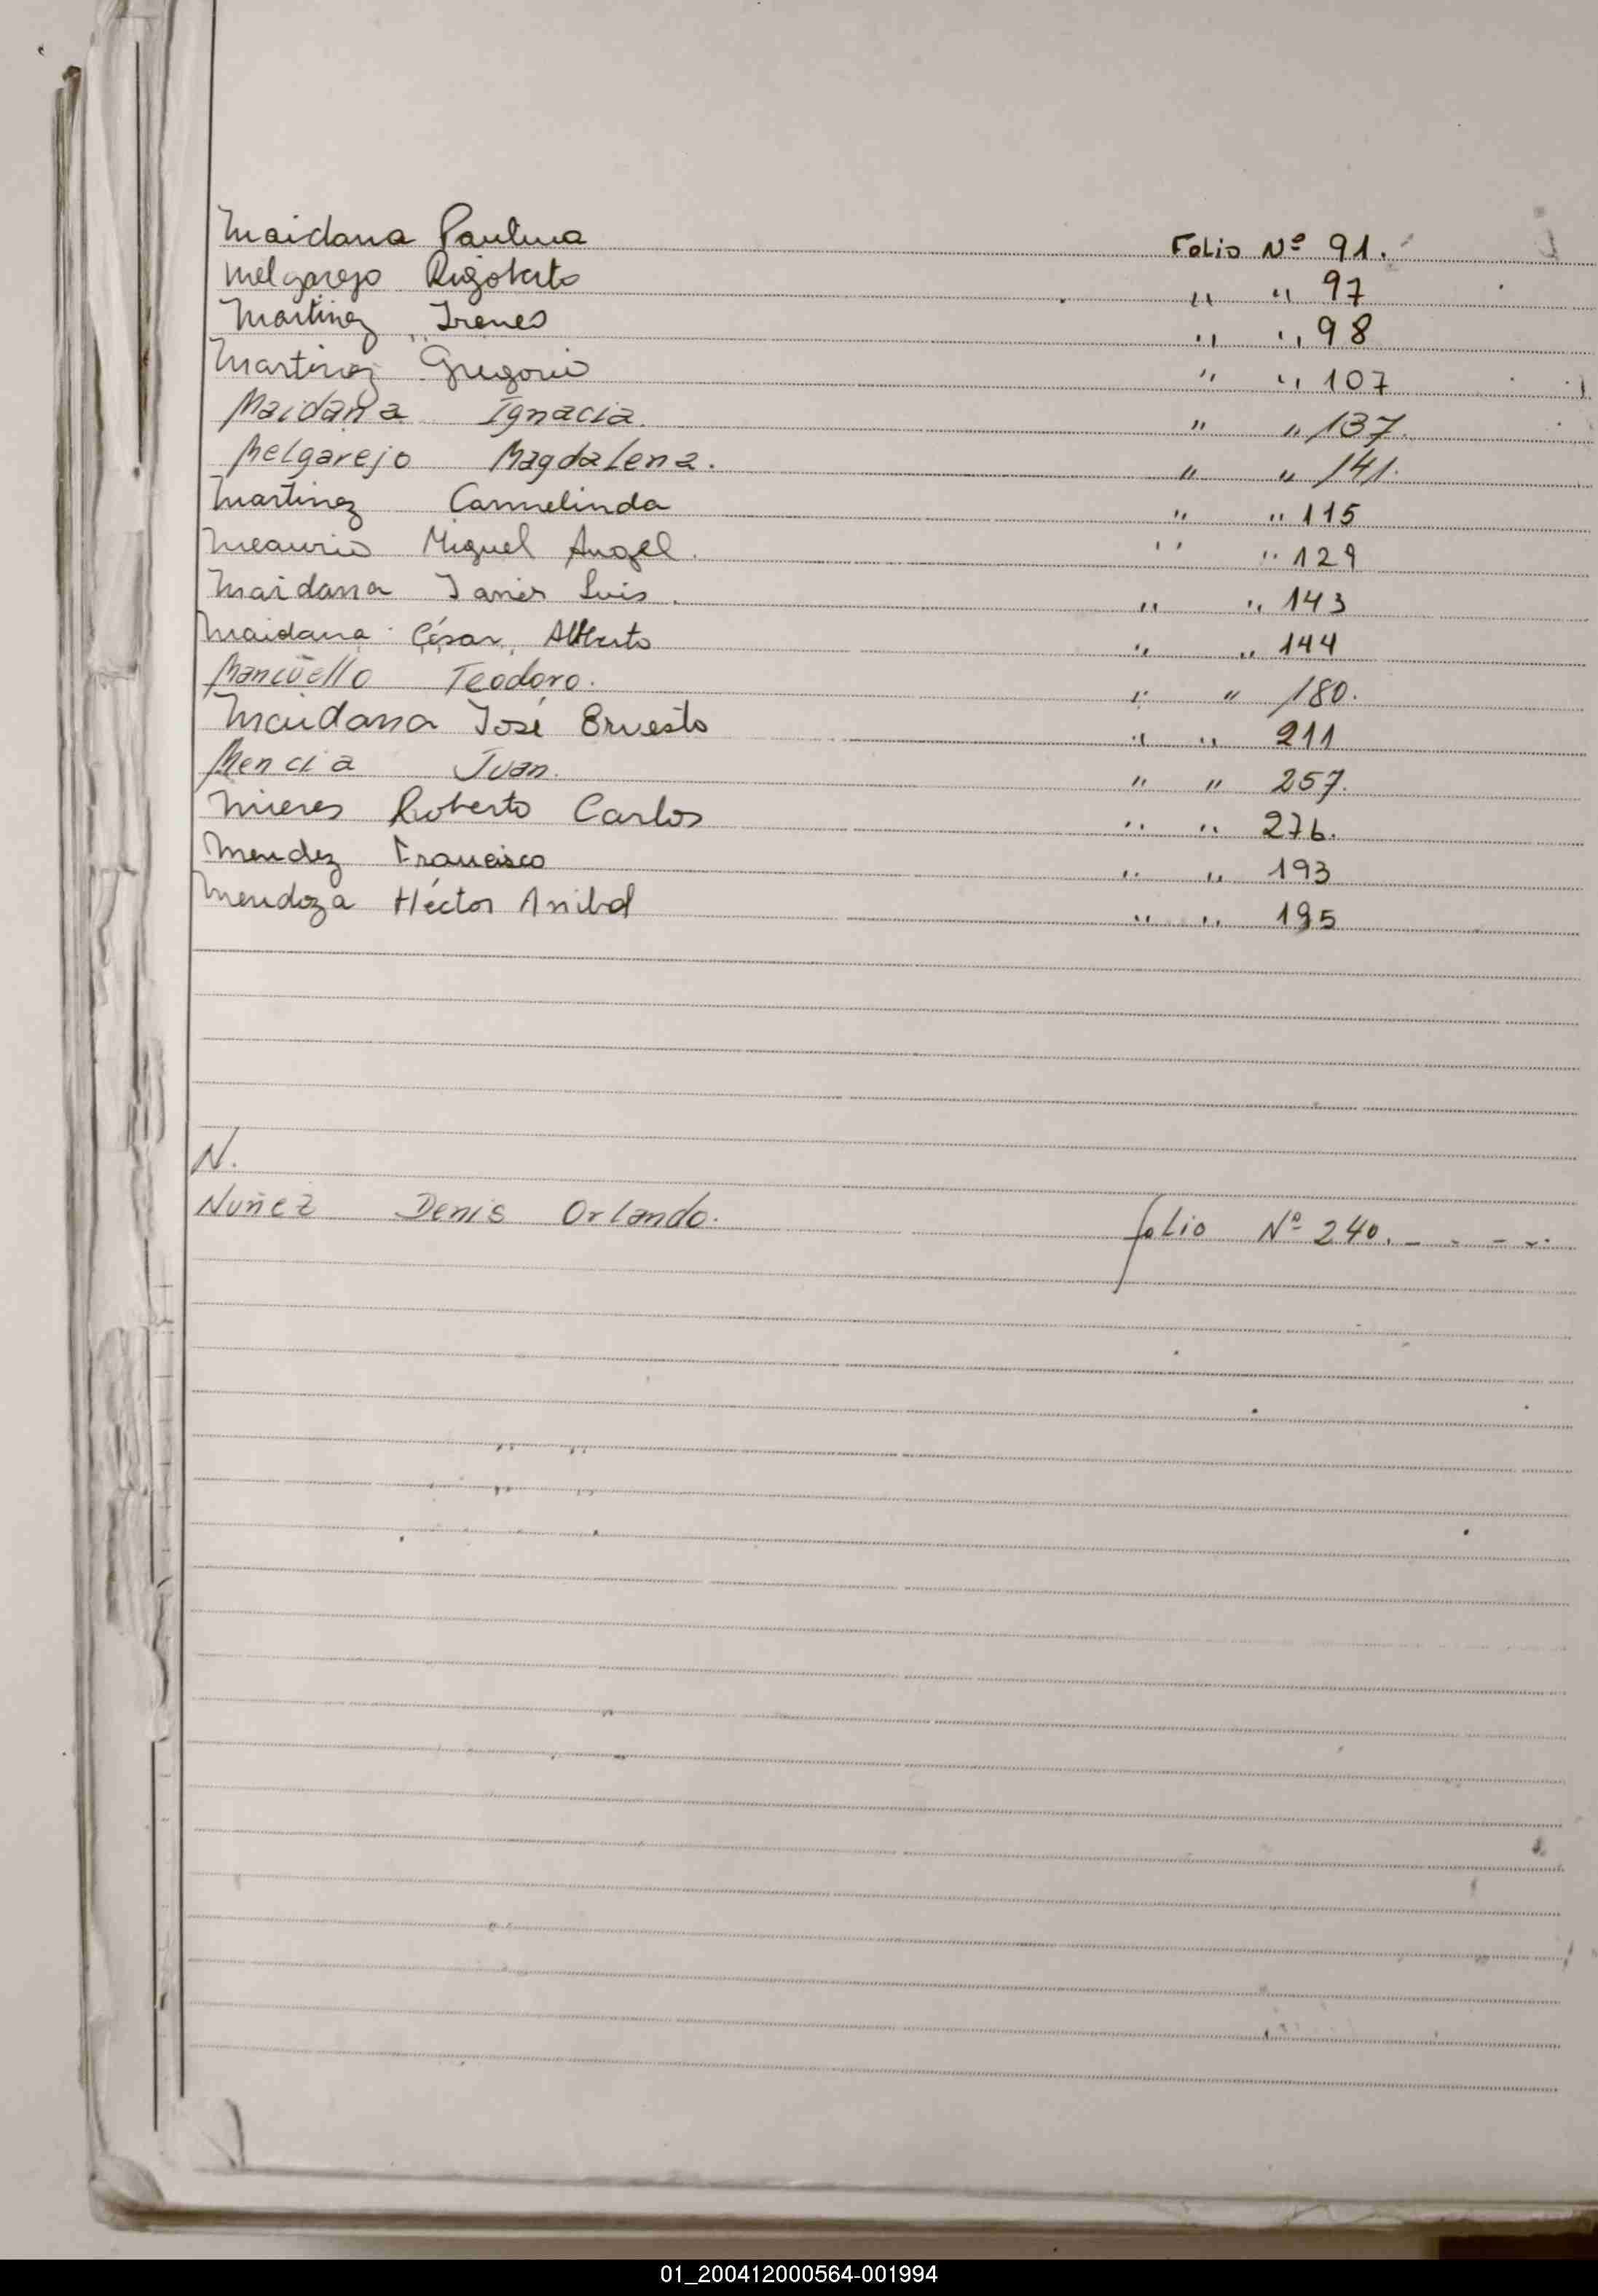 Maidana Paulina Folio Nº 91.
Melgarejo Rigoberto " " 97
Martinez Irenes " " 98
Martinez Gregorio " " 107
Maidana Ignacia. " " 137.
Melgarejo Magdalena. " " 141.
Martinez Carmelinda " " 115
Meaurio Miguel Angel. " " 129
Maidana Javier Luis. " " 143
Maidana César Alberto " " 144
Mancüello Teodoro. " " 180.
Maidana José Ernesto " " 211
Mencia Juan. " " 257.
Mieres Roberto Carlos " " 276.
Mendez Francisco " " 193
Mendoza Héctor Anibal " " 195
N.
Nuñez Denis Orlando. folio Nº 240. - - - -
01_200412000564-001994